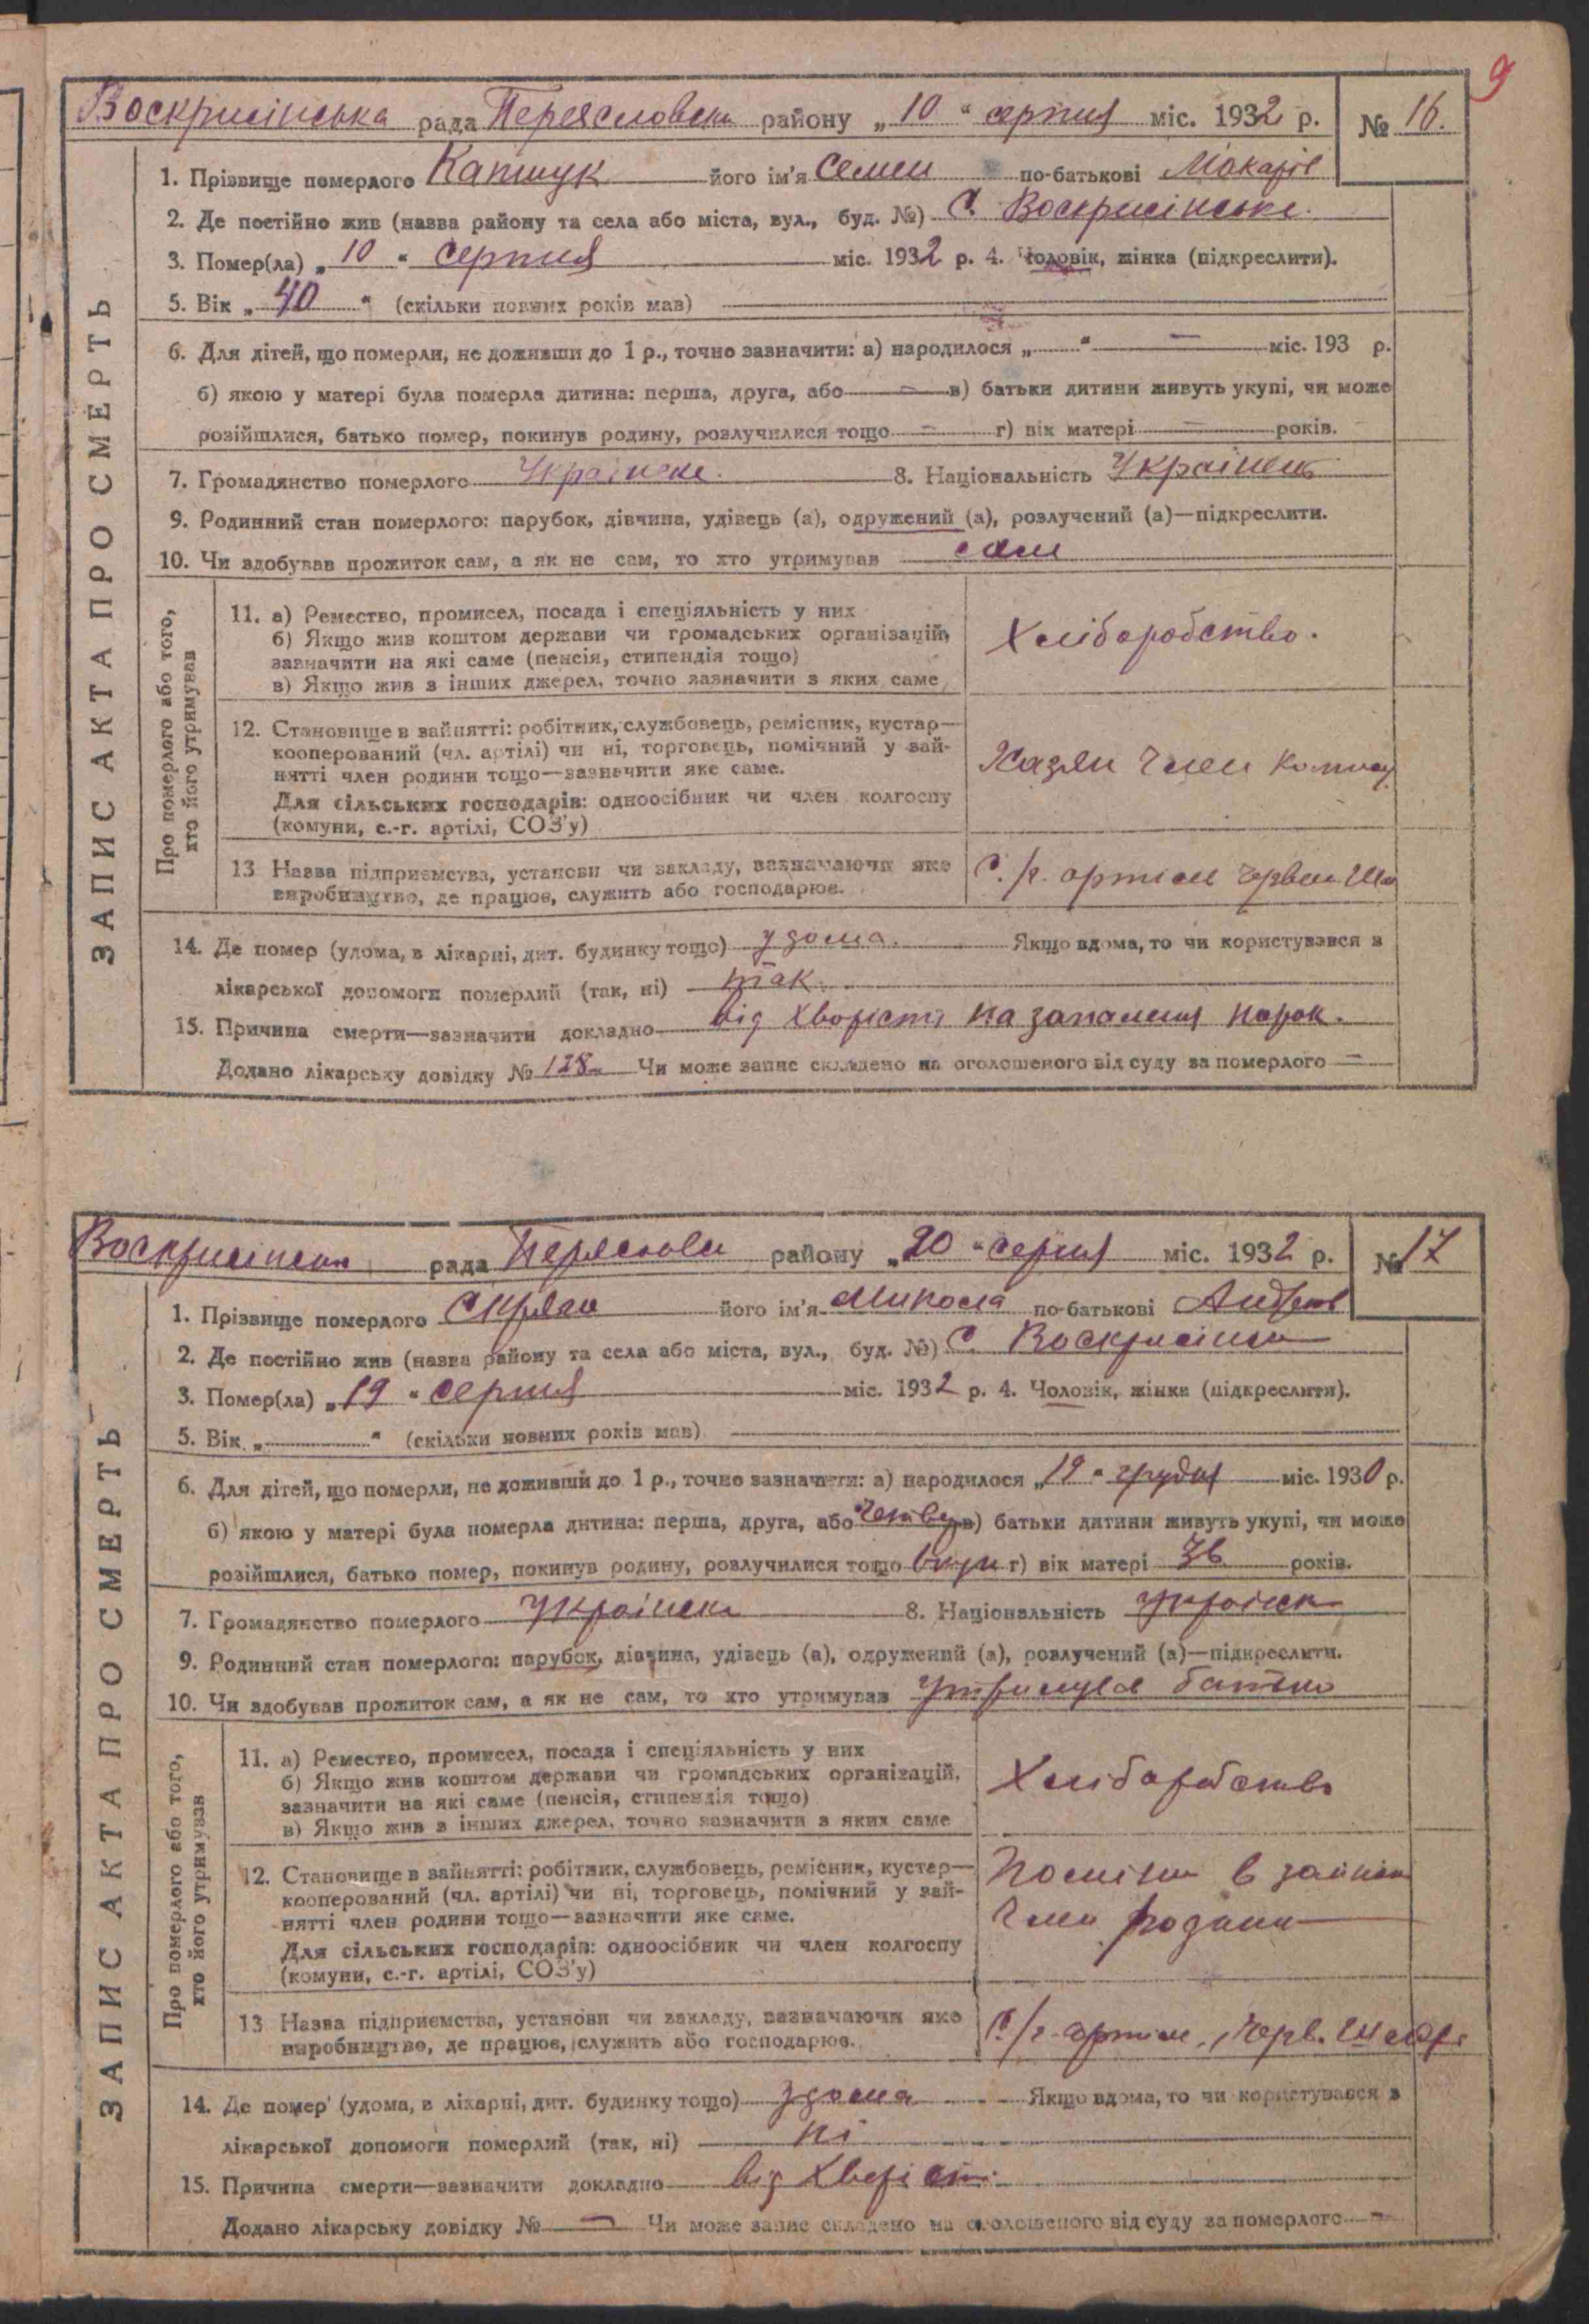 9
Воскрисінська рада Переясловськ району „10“ серпня міс. 1932 р. № 16.
ЗАПИС АКТА ПРО СМЕРТЬ
1. Прізвище померлого його ім'я Семен по-батькові Макарів
2. Де постійно жив (назва району та села або міста, вул., буд. №) С. Воскрисінське.
3. Помер(ла) „10“ серпня міс. 1932 р. 4. Чоловік, жінка (підкреслити).
5. Вік „40“ (скільки повних років мав)
6. Для дітей, що померли, не доживши до 1 р., точно зазначити: а) народилося „ “ — міс. 193 р.
б) якою у матері була померла дитина: перша, друга, або — в) батьки дитини живуть укупі, чи може
розійшлися, батько помер, покинув родину, розлучилися тощо — г) вік матері — років.
7. Громадянство померлого Українське. 8. Національність Українець
9. Родинний стан померлого: парубок, дівчина, удівець (а), одружений (а), розлучений (а)—підкреслити.
10. Чи здобував прожиток сам, а як не сам, то хто утримував сам
Про померлого або того,
хто його утримував
11. а) Ремество, промисел, посада і спеціяльність у них
б) Якщо жив коштом держави чи громадських організацій,
зазначити на які саме (пенсія, стипендія тощо)
в) Якщо жив з інших джерел, точно зазначити з яких саме
Хліборобство.
12. Становище в зайнятті: робітник, службовець, ремісник, кустар—
кооперований (чл. артілі) чи ні, торговець, помічний у зай-
нятті член родини тощо—зазначити яке саме.
Для сільських господарів: одноосібник чи член колгоспу
(комуни, с.-г. артілі, СОЗ'у)
Хазяїн член
13 Назва підприємства, установи чи закладу, зазначаючи яке
виробництво, де працює, служить або господарює.
С./г. артіль Червон.
14. Де помер (удома, в лікарні, дит. будинку тощо) удома. Якщо вдома, то чи користувався з
лікарської допомоги померлий (так, ні) так.
15. Причина смерти—зазначити докладно від хворісті на запалення нирок.
Додано лікарську довідку № 128 Чи може запис складено на оголошеного від суду за померлого —
Воскрисінська рада Переяслов району „20“ серпня міс. 1932 р. № 17
ЗАПИС АКТА ПРО СМЕРТЬ
1. Прізвище померлого його ім'я Микола по-батькові Андрієв
2. Де постійно жив (назва району та села або міста, вул., буд. №) С. Воскрисінськ
3. Помер(ла) „19“ серпня міс. 1932 р. 4. Чоловік, жінка (підкреслити).
5. Вік „ “ (скільки повних років мав)
6. Для дітей, що померли, не доживши до 1 р., точно зазначити: а) народилося „19“ грудня міс. 1930 р.
б) якою у матері була померла дитина: перша, друга, або четвер в) батьки дитини живуть укупі, чи може
розійшлися, батько помер, покинув родину, розлучилися тощо вкупі г) вік матері 36 років.
7. Громадянство померлого Українськ 8. Національність Українськ
9. Родинний стан померлого: парубок, дівчина, удівець (а), одружений (а), розлучений (а)—підкреслити.
10. Чи здобував прожиток сам, а як не сам, то хто утримував Утримував батько
Про померлого або того,
хто його утримував
11. а) Ремество, промисел, посада і спеціяльність у них
б) Якщо жив коштом держави чи громадських організацій,
зазначити на які саме (пенсія, стипендія тощо)
в) Якщо жив з інших джерел, точно зазначити з яких саме
Хліборобство
12. Становище в зайнятті: робітник, службовець, ремісник, кустар—
кооперований (чл. артілі) чи ні, торговець, помічний у зай-
нятті член родини тощо—зазначити яке саме.
Для сільських господарів: одноосібник чи член колгоспу
(комуни, с.-г. артілі, СОЗ'у)
Помічн в зайнят
член родини
13 Назва підприємства, установи чи закладу, зазначаючи яке
виробництво, де працює, служить або господарює.
С./г. артіль Черв.
14. Де помер (удома, в лікарні, дит. будинку тощо) удома Якщо вдома, то чи користувався з
лікарської допомоги померлий (так, ні) ні
15. Причина смерти—зазначити докладно від хворісті.
Додано лікарську довідку № — Чи може запис складено на оголошеного від суду за померлого —